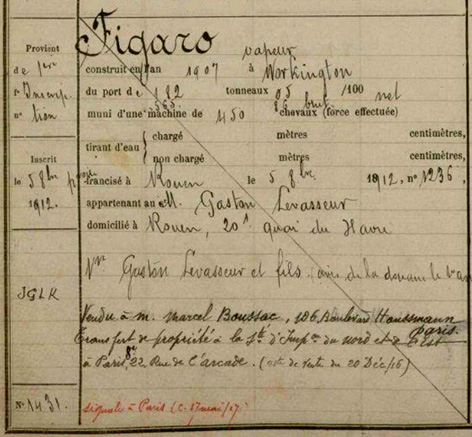 Figaro
vapeur
Provient
de 1ère
Inscrip
tion
n°
construit en l'an 1907 à Workington
du port de 182 tonneaux 05 /100 net
565 86 brut
muni d'une machine de 450 chevaux (force effectuée)
tirant d'eau { chargé mètres centimètres,
non chargé mètres centimètres,
Inscrit
le 5 8bre
1912.
francisé à Rouen le 5 8bre 1912, n° 1236.
appartenant au M. Gaston Levasseur
domicilié à Rouen, 20A quai du Havre
Gaston Levasseur et fils de la douane
JGLK
Vendu à M. Marcel Boussac, 186 Boulevard Haussmann
Paris.
transfert de propriété à la Sté d'Impon du Nord et de l'Est
à Paris, 22 Rue de l'Arcade. (acte de vente du 20 Déc/16)
N° 1431.
signalé à Paris (C. 17 mai/17)